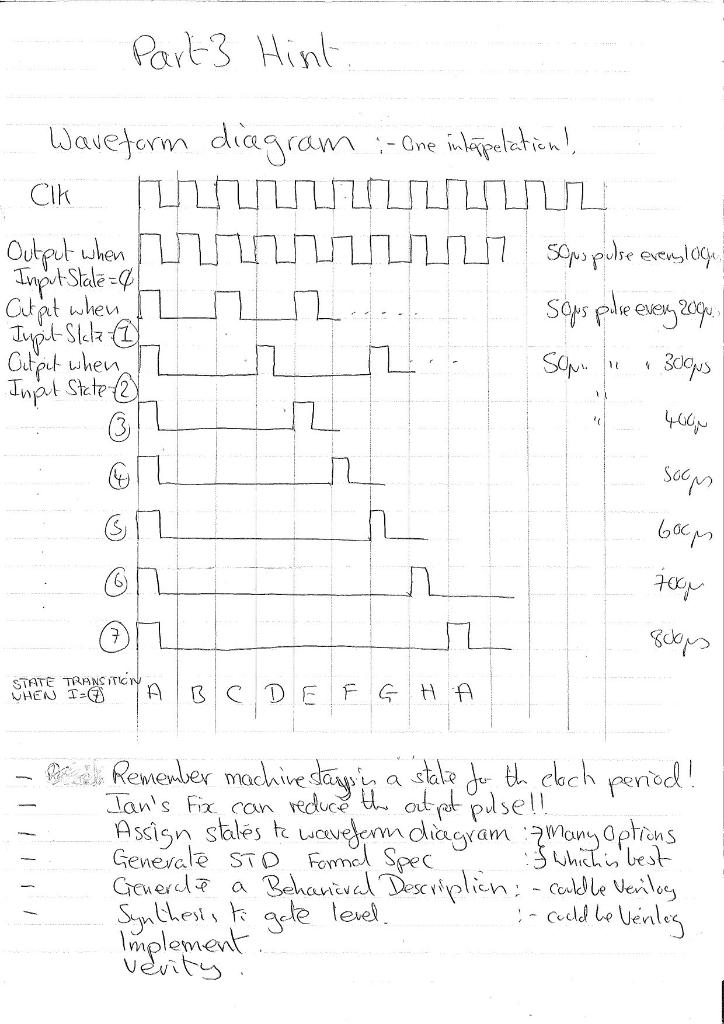 Part 3 Hint.
Waveform diagram :- One interpetation!,
Clk
Output when
Input State = 0
50μs pulse every 100μ
Output when
Input State = 1
50μs pulse every 200μ
Output when
Input State = 2
50μ " " " 300μs
3 " 400μ
4 500μs
5 600μs
6 700μ
7 800μs
STATE TRANSITION
WHEN I=7
A B C D E F G H A
- Remember machine stays in a state for th clock period!
- Ian's Fix can reduce the output pulse!!
- Assign states to waveform diagram :} Many Options
- Generate STD Formal Spec :} which is best
- Generate a Behavioral Description : - could be Verilog
- Synthesis to gate level. :- could be Verilog
Implement.
Verify.